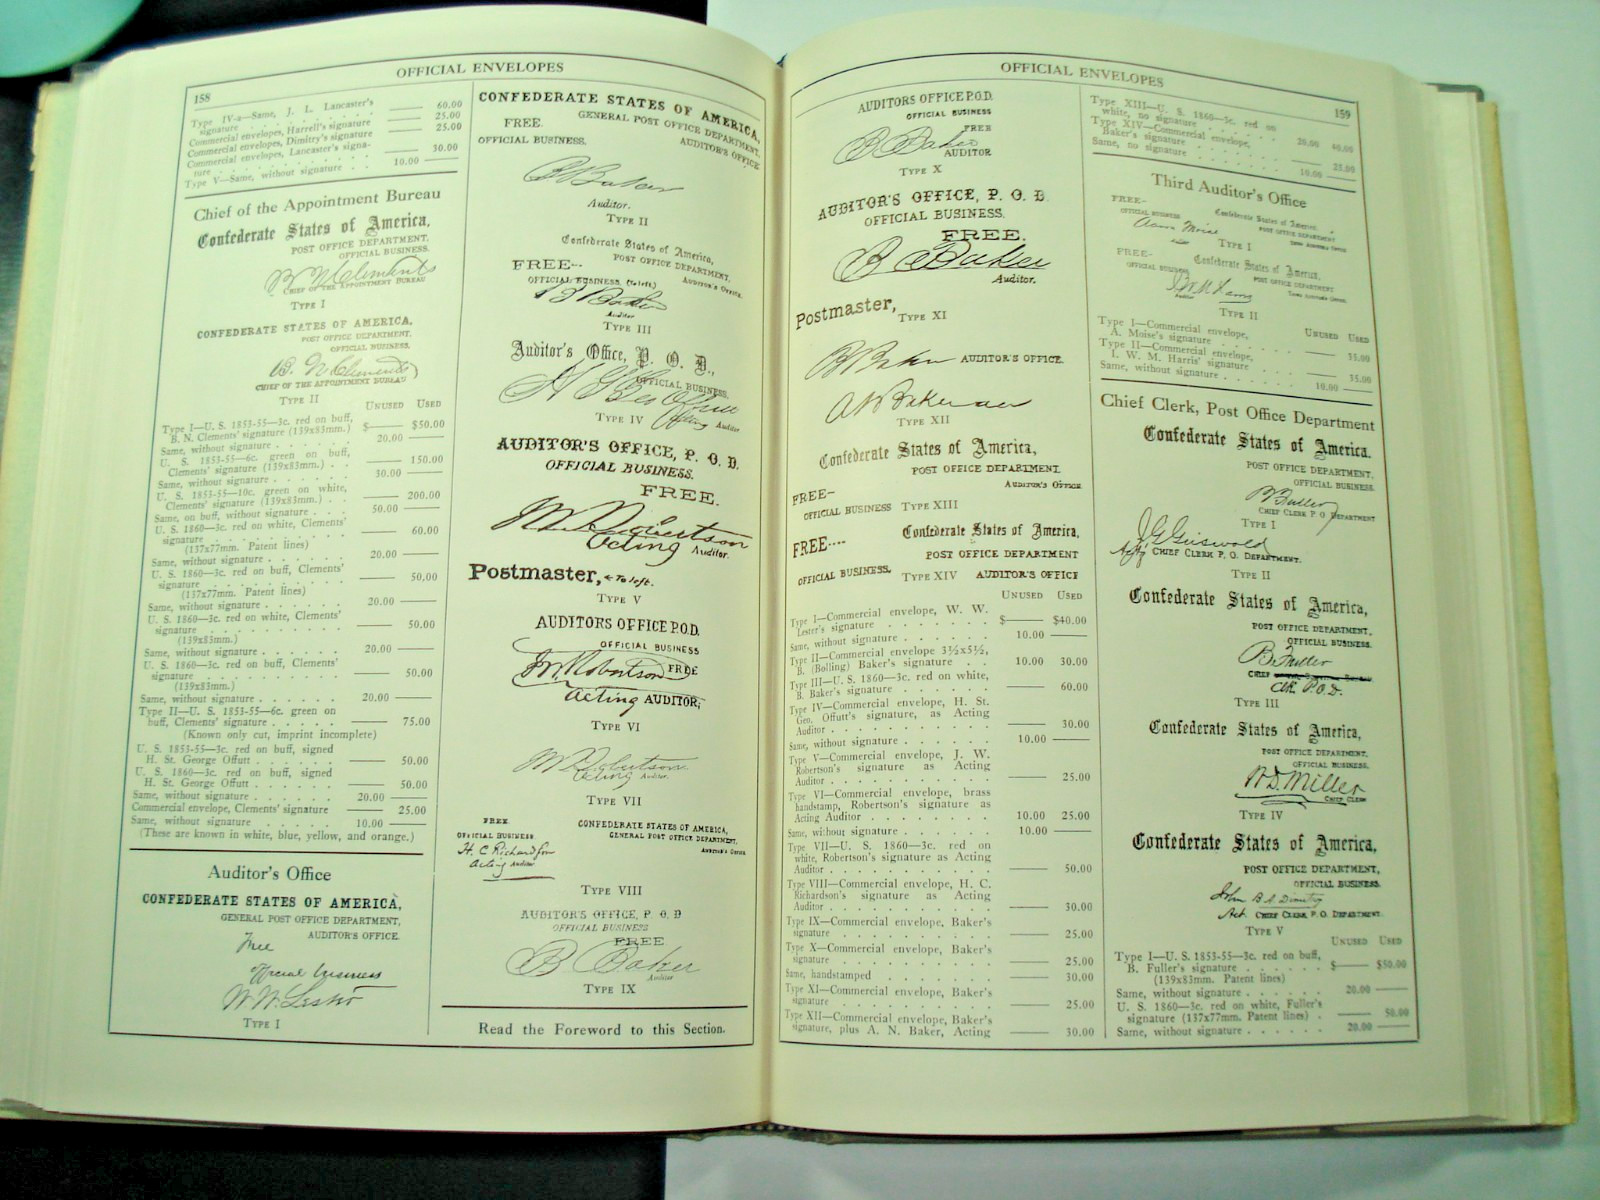 158
OFFICIAL ENVELOPES
Type IV-a—Same, J. L. Lancaster's
signature . . . . . . . 60.00
Commercial envelopes, Harrell's signature 25.00
Commercial envelopes, Dimitry's signature 25.00
Commercial envelopes, Lancaster's signa-
ture . . . . . . . 30.00
Type V—Same, without signature . . 10.00
Chief of the Appointment Bureau
Confederate States of America,
POST OFFICE DEPARTMENT,
OFFICIAL BUSINESS.
B. N. Clements
CHIEF OF THE APPOINTMENT BUREAU
TYPE I
CONFEDERATE STATES OF AMERICA,
POST OFFICE DEPARTMENT,
OFFICIAL BUSINESS.
B. N. Clements
CHIEF OF THE APPOINTMENT BUREAU
TYPE II
UNUSED USED
Type I—U. S. 1853-55—3c. red on buff,
B. N. Clements' signature (139x83mm.) $—— $50.00
Same, without signature . . . . . . 20.00 ——
U. S. 1853-55—6c. green on buff,
Clements' signature (139x83mm.) . . —— 150.00
Same, without signature . . . . . . 30.00 ——
U. S. 1853-55—10c. green on white,
Clements' signature (139x83mm.) . . —— 200.00
Same, on buff, without signature . . . 50.00 ——
U. S. 1860—3c. red on white, Clements'
signature . . . . . . . —— 60.00
(137x77mm. Patent lines)
Same, without signature . . . . . . 20.00 ——
U. S. 1860—3c. red on buff, Clements'
signature . . . . . . . —— 50.00
(137x77mm. Patent lines)
Same, without signature . . . . . . 20.00 ——
U. S. 1860—3c. red on white, Clements'
signature . . . . . . . —— 50.00
(139x83mm.)
Same, without signature . . . . . . 20.00 ——
U. S. 1860—3c. red on buff, Clements'
signature . . . . . . . —— 50.00
(139x83mm.)
Same, without signature . . . . . . 20.00 ——
Type II—U. S. 1853-55—6c. green on
buff, Clements' signature . . . . . —— 75.00
(Known only cut, imprint incomplete)
U. S. 1853-55—3c. red on buff, signed
H. St. George Offutt . . . . . . —— 50.00
U. S. 1860—3c. red on buff, signed
H. St. George Offutt . . . . . . —— 50.00
Same, without signature . . . . . . 20.00 ——
Commercial envelope, Clements' signature —— 25.00
Same, without signature . . . . . 10.00 ——
(These are known in white, blue, yellow, and orange.)
Auditor's Office
CONFEDERATE STATES OF AMERICA,
GENERAL POST OFFICE DEPARTMENT,
AUDITOR'S OFFICE.
Free
Official business
W. W. Lester
TYPE I
CONFEDERATE STATES OF AMERICA,
GENERAL POST OFFICE DEPARTMENT,
FREE. AUDITOR'S OFFICE
OFFICIAL BUSINESS.
B Baker
Auditor.
TYPE II
Confederate States of America,
POST OFFICE DEPARTMENT,
FREE-- AUDITOR'S OFFICE.
OFFICIAL BUSINESS (to left)
B Baker
Auditor
TYPE III
Auditor's Office, P. O. D.,
OFFICIAL BUSINESS.
H St Geo Offutt
Acting Auditor
TYPE IV
AUDITOR'S OFFICE, P. O. D.
OFFICIAL BUSINESS.
FREE.
J W Robertson
Acting Auditor.
Postmaster, ← To left.
TYPE V
AUDITORS OFFICE P.O.D.
OFFICIAL BUSINESS
J W Robertson FREE
Acting AUDITOR,
TYPE VI
J W Robertson
Acting Auditor.
TYPE VII
FREE CONFEDERATE STATES OF AMERICA,
OFFICIAL BUSINESS. GENERAL POST OFFICE DEPARTMENT,
H. C Richardson AUDITOR'S OFFICE
Acting Auditor
TYPE VIII
AUDITOR'S OFFICE, P. O. D
OFFICIAL BUSINESS
FREE
B Baker
Auditor
TYPE IX
Read the Foreword to this Section.
OFFICIAL ENVELOPES
159
AUDITORS OFFICE P.O.D.
OFFICIAL BUSINESS
FREE
B Baker
AUDITOR
TYPE X
AUDITOR'S OFFICE, P. O. D.
OFFICIAL BUSINESS.
FREE.
B Baker
Auditor.
Postmaster,
TYPE XI
B Baker AUDITOR'S OFFICE.
A N Baker
TYPE XII
Confederate States of America,
POST OFFICE DEPARTMENT.
AUDITOR'S OFFICE
FREE-
OFFICIAL BUSINESS TYPE XIII
Confederate States of America,
FREE---- POST OFFICE DEPARTMENT
OFFICIAL BUSINESS. TYPE XIV AUDITOR'S OFFICE
UNUSED USED
Type I—Commercial envelope, W. W.
Lester's signature . . . . . . . $—— $40.00
Same, without signature . . . . . . 10.00 ——
Type II—Commercial envelope 3½x5½,
B. (Bolling) Baker's signature . . 10.00 30.00
Type III—U. S. 1860—3c. red on white,
B. Baker's signature . . . . . . —— 60.00
Type IV—Commercial envelope, H. St.
Geo. Offutt's signature, as Acting
Auditor . . . . . . . . . —— 30.00
Same, without signature . . . . . . 10.00 ——
Type V—Commercial envelope, J. W.
Robertson's signature as Acting
Auditor . . . . . . . . . —— 25.00
Type VI—Commercial envelope, brass
handstamp, Robertson's signature as
Acting Auditor . . . . . . . . 10.00 25.00
Same, without signature . . . . . . 10.00 ——
Type VII—U. S. 1860—3c. red on
white, Robertson's signature as Acting
Auditor . . . . . . . . . —— 50.00
Type VIII—Commercial envelope, H. C.
Richardson's signature as Acting
Auditor . . . . . . . . . —— 30.00
Type IX—Commercial envelope, Baker's
signature . . . . . . . . —— 25.00
Type X—Commercial envelope, Baker's
signature . . . . . . . . —— 25.00
Same, handstamped . . . . . . . —— 30.00
Type XI—Commercial envelope, Baker's
signature . . . . . . . . —— 25.00
Type XII—Commercial envelope, Baker's
signature, plus A. N. Baker, Acting —— 30.00
Type XIII—U. S. 1860—3c. red on
white, no signature . . . . . . 20.00 40.00
Type XIV—Commercial envelope,
Baker's signature . . . . . . —— 25.00
Same, no signature . . . . . . 10.00 ——
Third Auditor's Office
FREE- Confederate States of America,
OFFICIAL BUSINESS POST OFFICE DEPARTMENT
TYPE I
FREE- Confederate States of America,
OFFICIAL BUSINESS POST OFFICE DEPARTMENT
TYPE II
UNUSED USED
Type I—Commercial envelope,
A. Moise's signature . . . . . . —— 35.00
Type II—Commercial envelope,
I. W. M. Harris' signature . . . —— 35.00
Same, without signature . . . . . . 10.00 ——
Chief Clerk, Post Office Department
Confederate States of America.
POST OFFICE DEPARTMENT,
OFFICIAL BUSINESS.
B Fuller
CHIEF CLERK P O. DEPARTMENT
TYPE I
J. G. Griswold
Actg CHIEF CLERK P. O. DEPARTMENT.
TYPE II
Confederate States of America,
POST OFFICE DEPARTMENT,
OFFICIAL BUSINESS.
B. Fuller
CHIEF
Clk P.O.D.
TYPE III
Confederate States of America,
POST OFFICE DEPARTMENT,
OFFICIAL BUSINESS.
W. D. Miller
CHIEF CLERK
TYPE IV
Confederate States of America,
POST OFFICE DEPARTMENT,
OFFICIAL BUSINESS.
John B. A. Dimitry
Act. CHIEF CLERK P. O. DEPARTMENT.
TYPE V
UNUSED USED
Type I—U. S. 1853-55—3c. red on buff,
B. Fuller's signature . . . . . . $—— $50.00
(139x83mm. Patent lines)
Same, without signature . . . . . . 20.00 ——
U. S. 1860—3c. red on white, Fuller's
signature (137x77mm. Patent lines) . —— 50.00
Same, without signature . . . . . . 20.00 ——